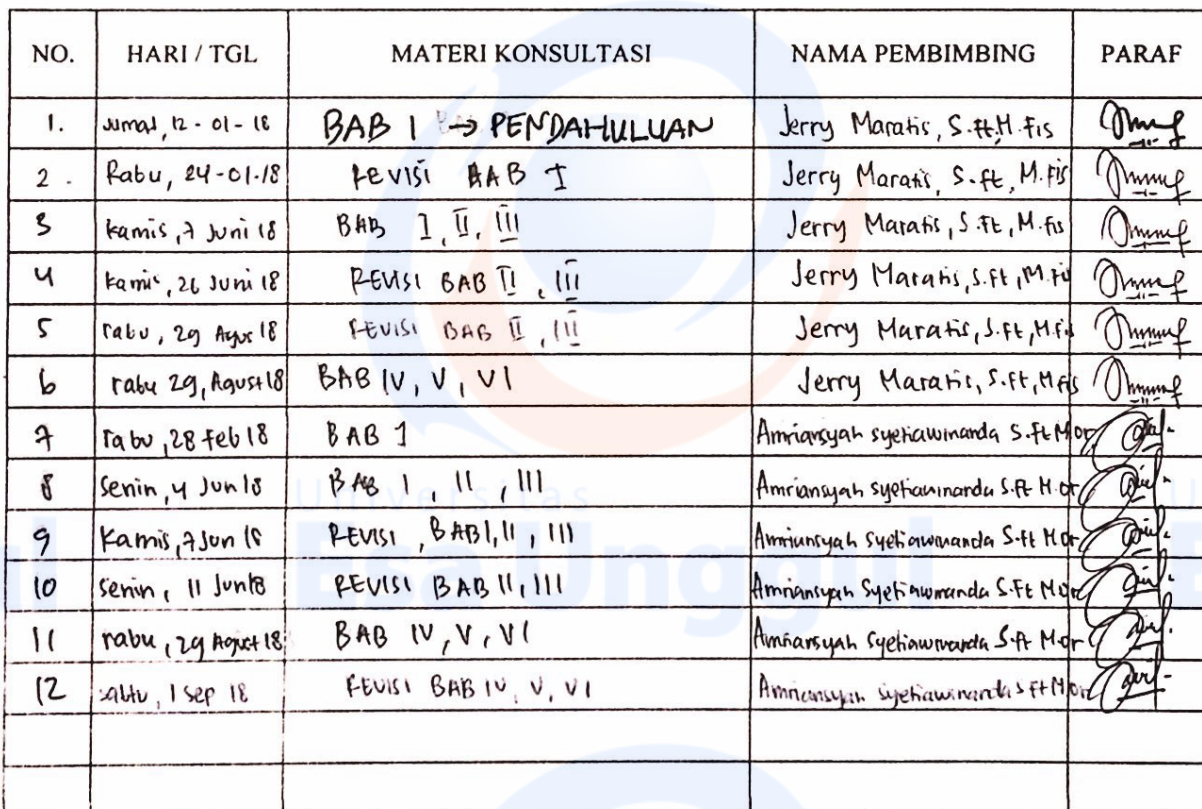 NO. HARI / TGL MATERI KONSULTASI NAMA PEMBIMBING PARAF
1. Jumat, 12 - 01 - 18 BAB 1 → PENDAHULUAN Jerry Maratis, S.Ft, M.Fis
2. Rabu, 24-01-18 REVISI BAB I Jerry Maratis, S.Ft, M.Fis
3 kamis, 7 Juni 18 BAB I, II, III Jerry Maratis, S.Ft, M.Fis
4 kamis, 26 Juni 18 REVISI BAB II, III Jerry Maratis, S.Ft, M.Fis
5 rabu, 29 Agus 18 REVISI BAB II, III Jerry Maratis, S.Ft, M.Fis
6 rabu 29, Agust 18 BAB IV, V, VI Jerry Maratis, S.Ft, M.Fis
7 rabu, 28 Feb 18 BAB 1 Amriansyah syetiawinanda S.Ft M.or
8 Senin, 4 Jun 18 BAB I, II, III Amriansyah syetiawinanda S.Ft M.or
Universitas
9 Kamis, 7 Jun 18 REVISI, BAB I, II, III Amriansyah Syetiawinanda S.Ft M.or
Esa Unggul
10 Senin, 11 Jun 18 REVISI BAB II, III Amriansyah Syetiawinanda S.Ft M.or
11 rabu, 29 Agust 18 BAB IV, V, VI Amriansyah Syetiawinanda S.Ft M.or
12 sabtu, 1 Sep 18 REVISI BAB IV, V, VI Amriansyah Syetiawinanda S.Ft M.or